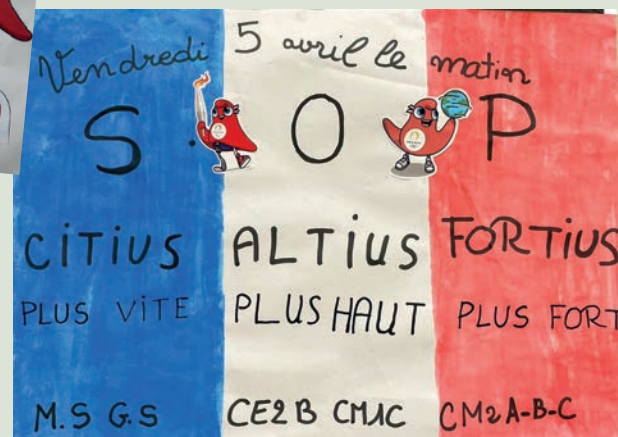 Vendredi 5 avril le matin
S.O P
CITIUS ALTIUS FORTIUS
PLUS VITE PLUS HAUT PLUS FORT
M.S G.S CE2 B CM1C CM2 A-B-C